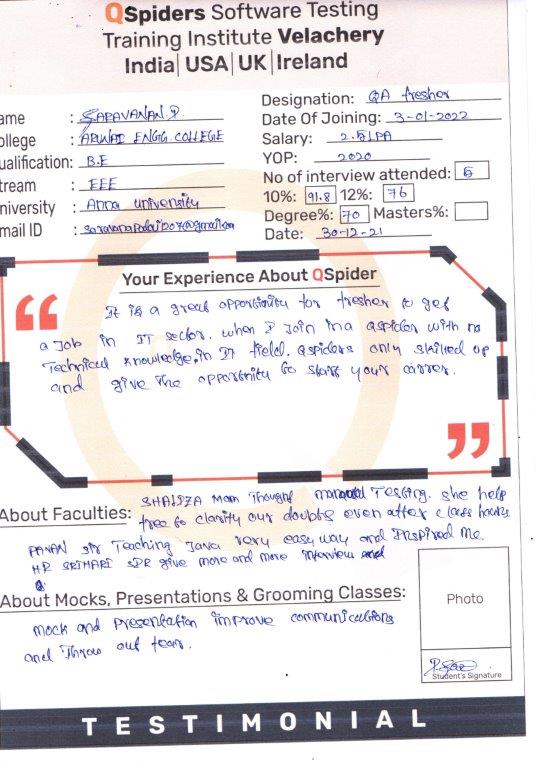 QSpiders Software Testing
Training Institute Velachery
India| USA| UK| Ireland
ame : SARAVANAN.P
ollege : ARUNAI ENGG. COLLEGE
ualification: B.E
tream : EEE
niversity : Anna university
mail ID :
Designation: QA fresher
Date Of Joining: 3-01-2022
Salary: 2.5LPA
YOP: 2020
No of interview attended: 5
10%: 91.8 12%: 76
Degree%: 70 Masters%:
Date: 30-12-21
Your Experience About QSpider
It is a great opportinity for fresher to get
a Job in IT sector. when I Join in a aspider with no
Technical knowledge.in IT field. aspiders only skilled up
and give The opportnity to start your career.
About Faculties: SHAISZA Mam Thought manual Testing. She help
free to clarity our doubts even after class hours
PAVAN sir Teaching Java very easy way and Inspired me.
HR SRIHARI SIR give more and more interview
About Mocks, Presentations & Grooming Classes:
mock and presentation improve communications
and Throw out fear.
Photo
Student's Signature
TESTIMONIAL